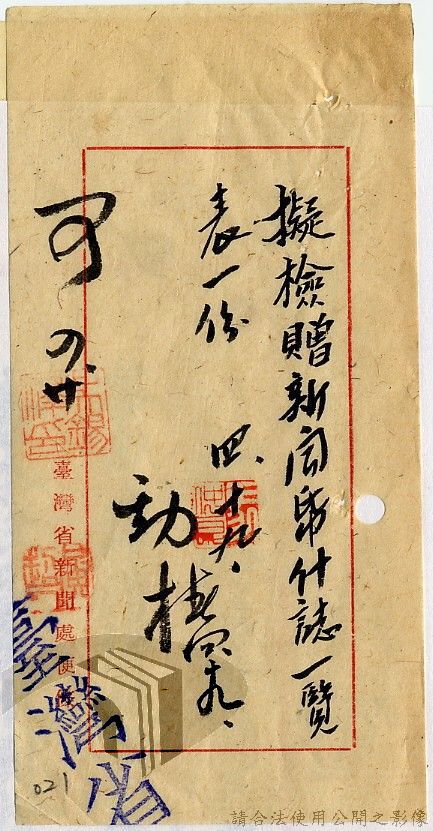 擬檢贈新聞紙什誌一覽
表一份
四、十九、
四、十九、
可
四、廿
臺灣省新聞處便
臺灣省
021
請合法使用公開之影像